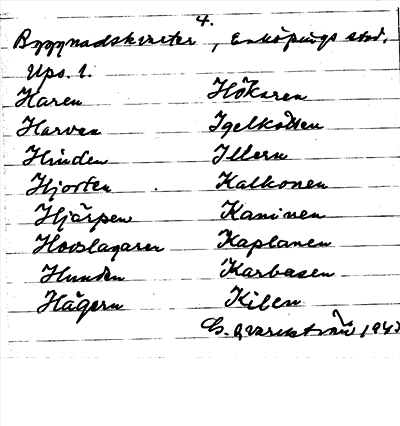 4.
Byggnadskvarter, Enköpings stad.
Ups. l.
Haren
Harven
Hinden
Hjorten
Hjärpen
Hovslagaren
Hunden
Hägern
Höksren
Igelkotten
Illern
Kalkonen
Kaninen
Kaplanen
Karbasen
Kilen
G. Qvarnström 1943